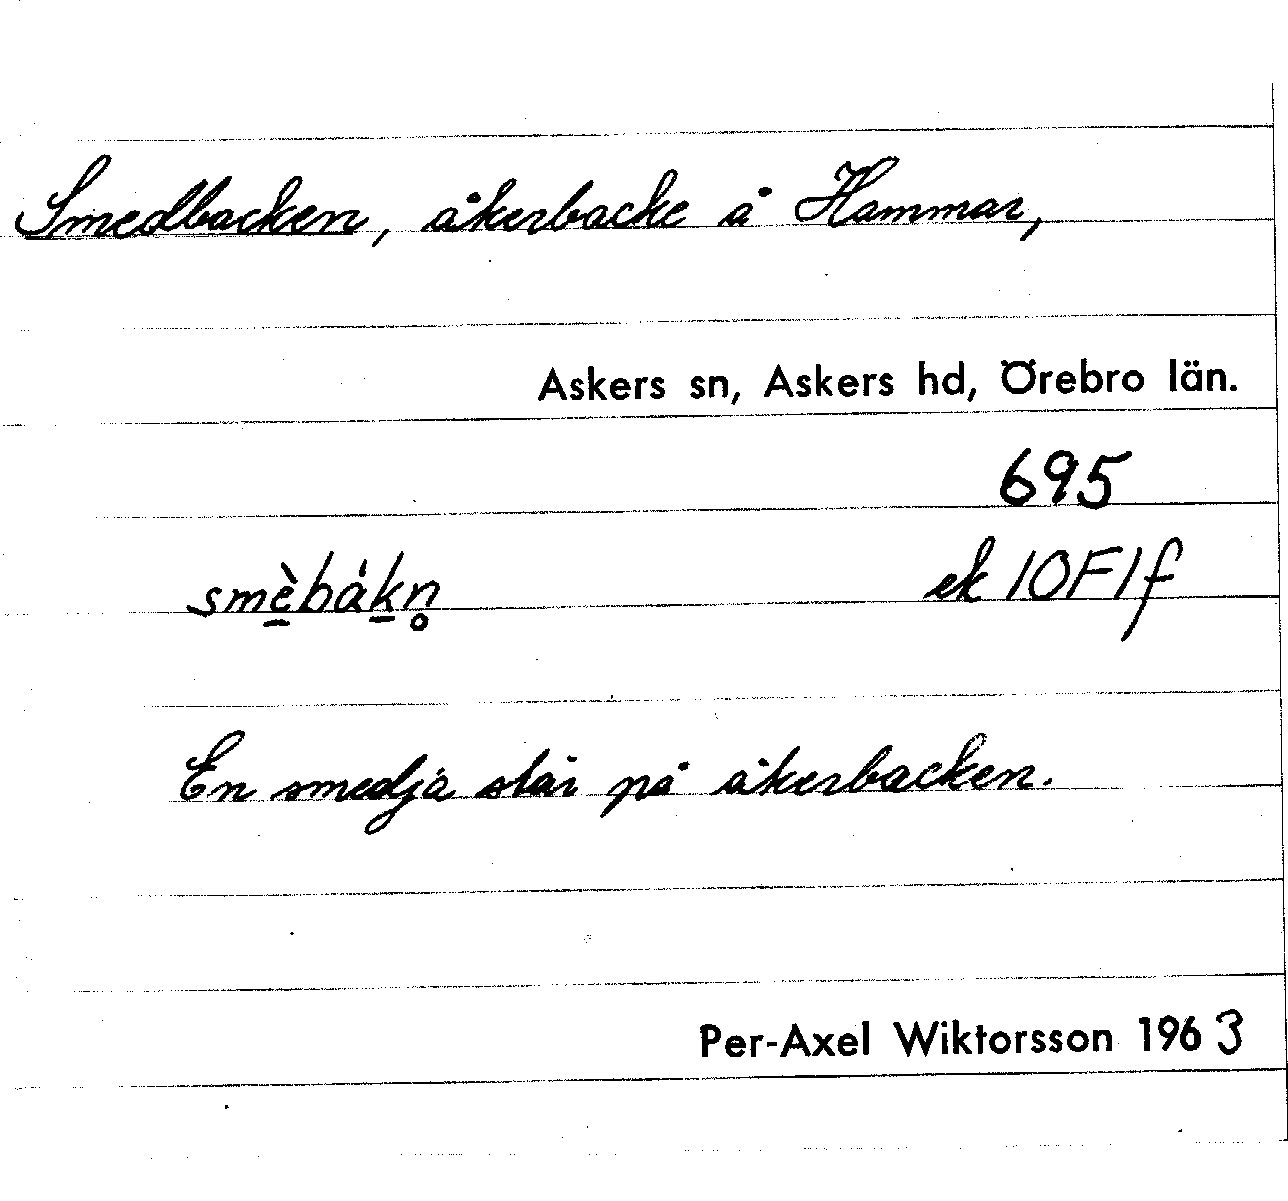 Smedbacken, åkerbacke å Hammar,
Askers sn, Askers hd, Örebro län.
695
smè̠bák̠n̥ ek 10F1f
En smedja står på åkerbacken.
Per-Axel Wiktorsson 1963